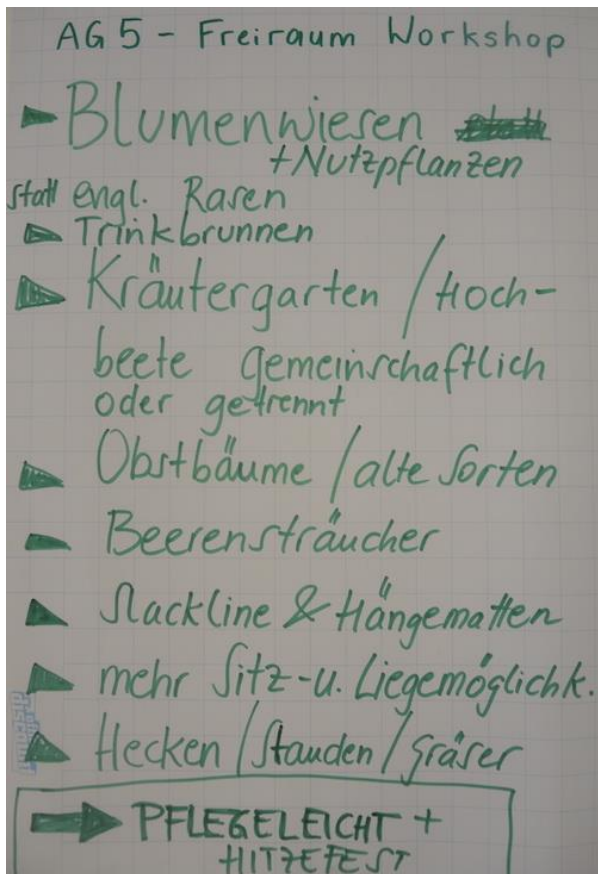 AG 5 - Freiraum Workshop
Blumenwiesen
+ Nutzpflanzen
statt engl. Rasen
Trinkbrunnen
Kräutergarten / Hoch-
beete gemeinschaftlich
oder getrennt
Obstbäume / alte Sorten
Beerensträucher
Slackline & Hängematten
mehr Sitz-u. Liegemöglichk.
Hecken / Stauden / Gräser
PFLEGELEICHT +
HITZEFEST